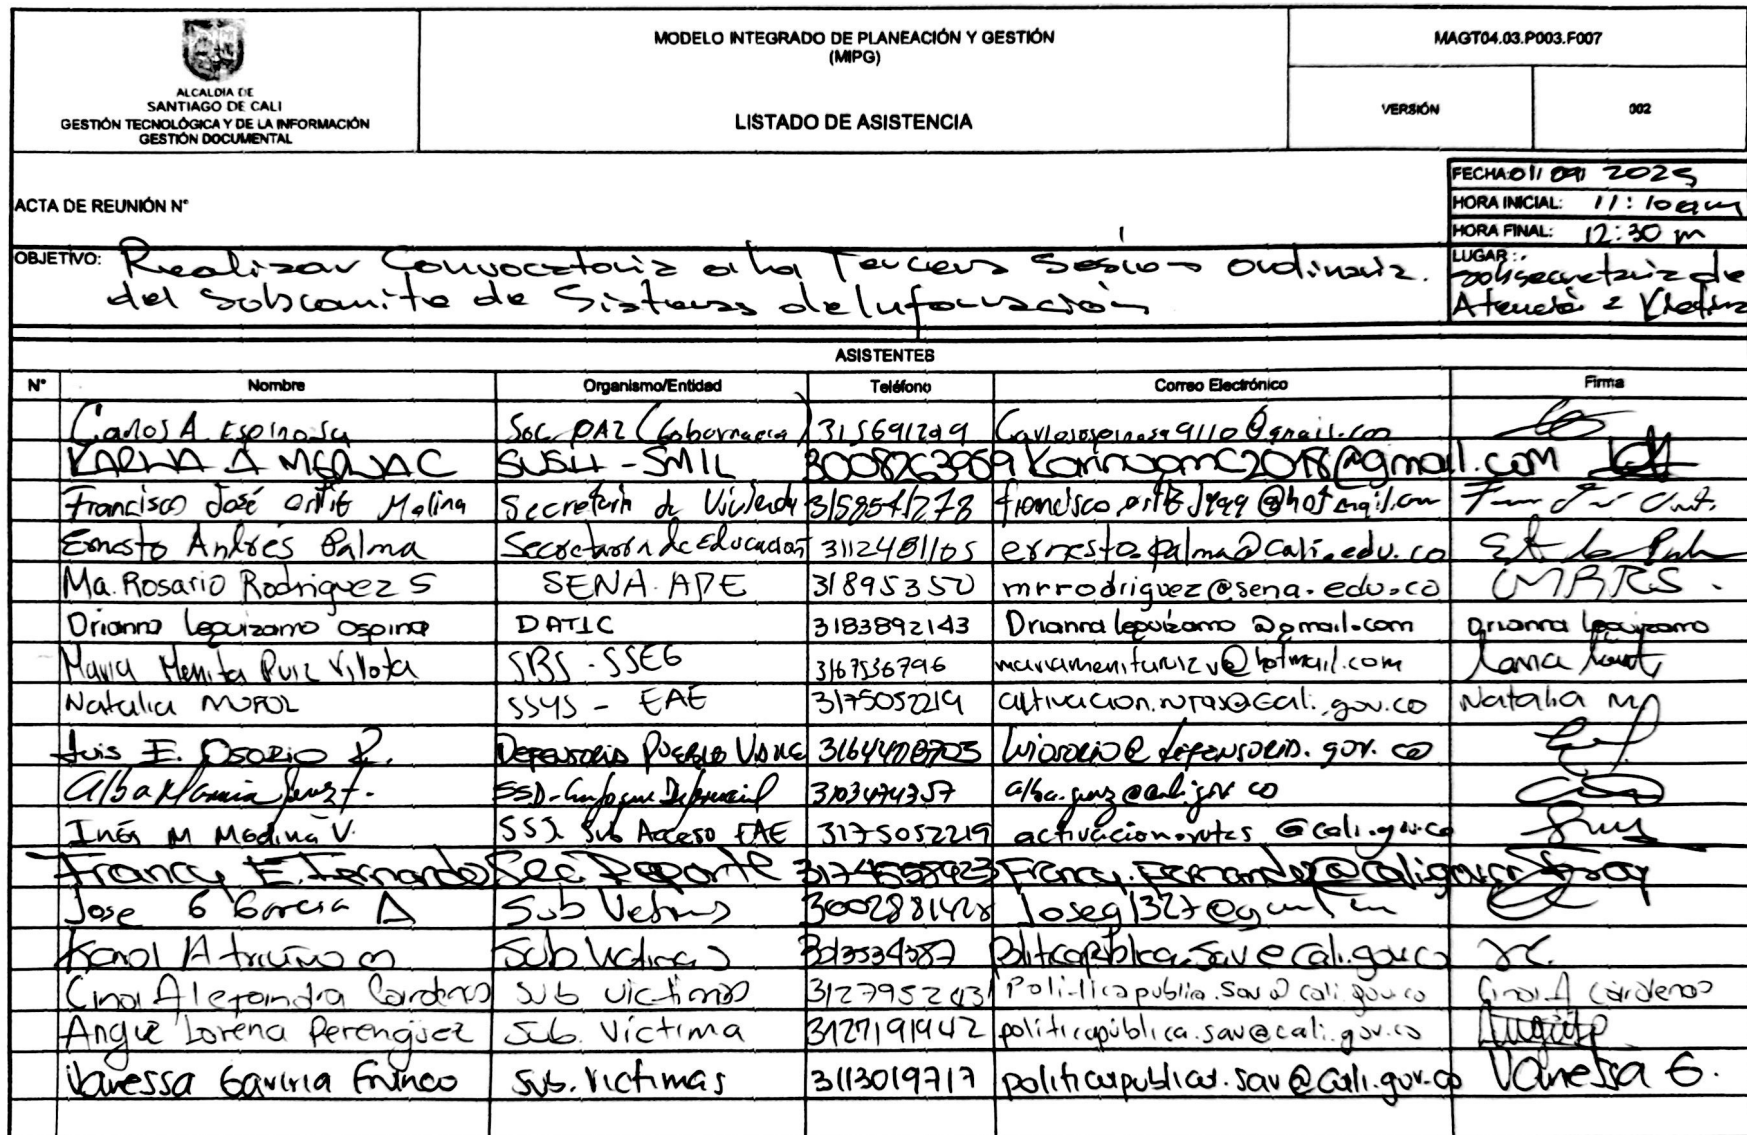 ALCALDÍA DE
SANTIAGO DE CALI
GESTIÓN TECNOLÓGICA Y DE LA INFORMACIÓN
GESTIÓN DOCUMENTAL
MODELO INTEGRADO DE PLANEACIÓN Y GESTIÓN
(MIPG)
LISTADO DE ASISTENCIA
MAGT04.03.P003.F007
VERSIÓN 002
ACTA DE REUNIÓN N°
FECHA: 01/09/2025
HORA INICIAL: 11:10am
HORA FINAL: 12:30 m
LUGAR: Subsecretaria de
Atención a Victima
OBJETIVO: Realizar Convocatoria a la Tercera Sesion ordinaria.
del Subcomite de Sistemas de Información
ASISTENTES
N° Nombre Organismo/Entidad Teléfono Correo Electrónico Firma
Carlos A. Espinosa Sec PAZ (Gobernacion) 315691299
KARINA A SUSH - SMIL 3008263969
Francisco José Ortiz Molina Secretaria de Vivienda 3158541278
Ernesto Andrés Palma Secretaría de Educación 3112481105 ernesto.palma@cali.edu.co
Ma. Rosario Rodriguez S SENA. APE 31895350 mrrodriguez@sena.edu.co MRRS.
Orianna Leguizamo Ospina DATIC 3183892143 Oriannaleguizamo@gmail.com Orianna Leguizamo
Maria Menita Ruiz Villota SBS - SSEG 3167536796 mariamenitaruizv@hotmail.com
Natalia SSYS - EAE 3175052219 activacion.rutas@cali.gov.co Natalia M
Luis E. OSORIO R. Defensoria Pueblo Valle luiosorio@defensoria.gov.co
Alba SSD - Enfoque Diferencial 3103474357
Inés M Medina V. SSJ. Sub Acceso EAE 3175052219 activacion.rutas@cali.gov.co
Francy E. Fernande Sec Deporte 3174558923
Jose G Garcia A Sub Vctmas 3002881428
Karol A Triviño m Sub Victimas politicapublica.sav@cali.gov.co
Alejandra Cardenas Sub victimas 3127952431 Politicapublia.sav@cali.gov.co
Angie Lorena Perenguez Sub. Víctima 3127191942 politicapública.sav@cali.gov.co
Vanessa Gaviria Franco Sub. Victimas 3113019717 politicapublica.sav@cali.gov.co Vanessa G.